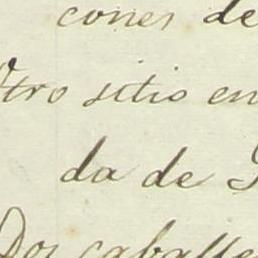 cones de
Otro sitio en
da de
Dos caballe